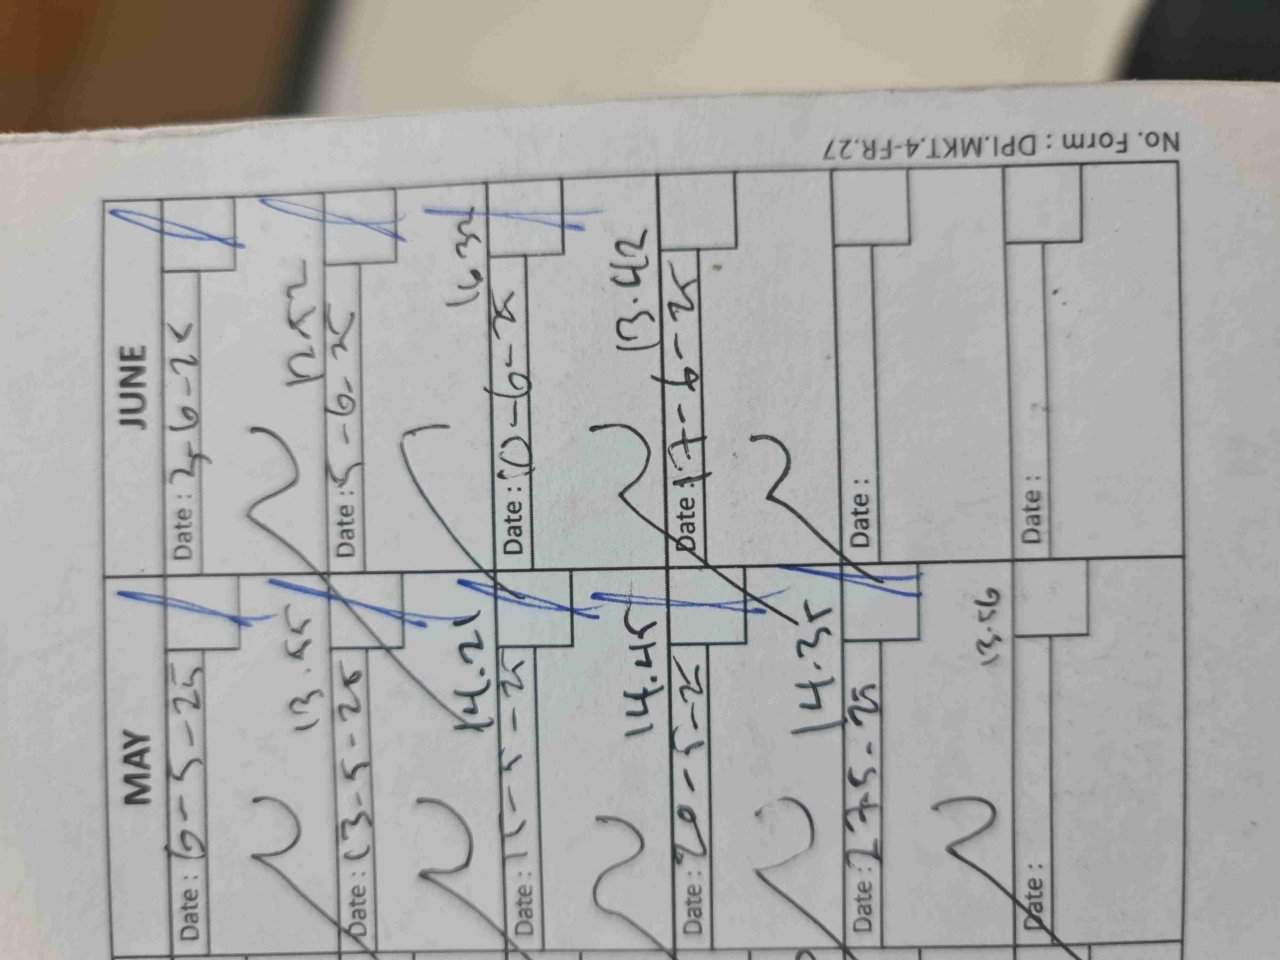 MAY
Date : 6-5-25
13.55
Date : 13-5-25
14.21
Date : 15-5-25
14.45
Date : 20-5-25
14.35
Date : 27-5-25
13.56
Date :
JUNE
Date : 3-6-25
12.52
Date : 5-6-25
16.32
Date : 10-6-25
13.42
Date : 17-6-25
Date :
Date :
No. Form : DPI.MKT.4-FR.27